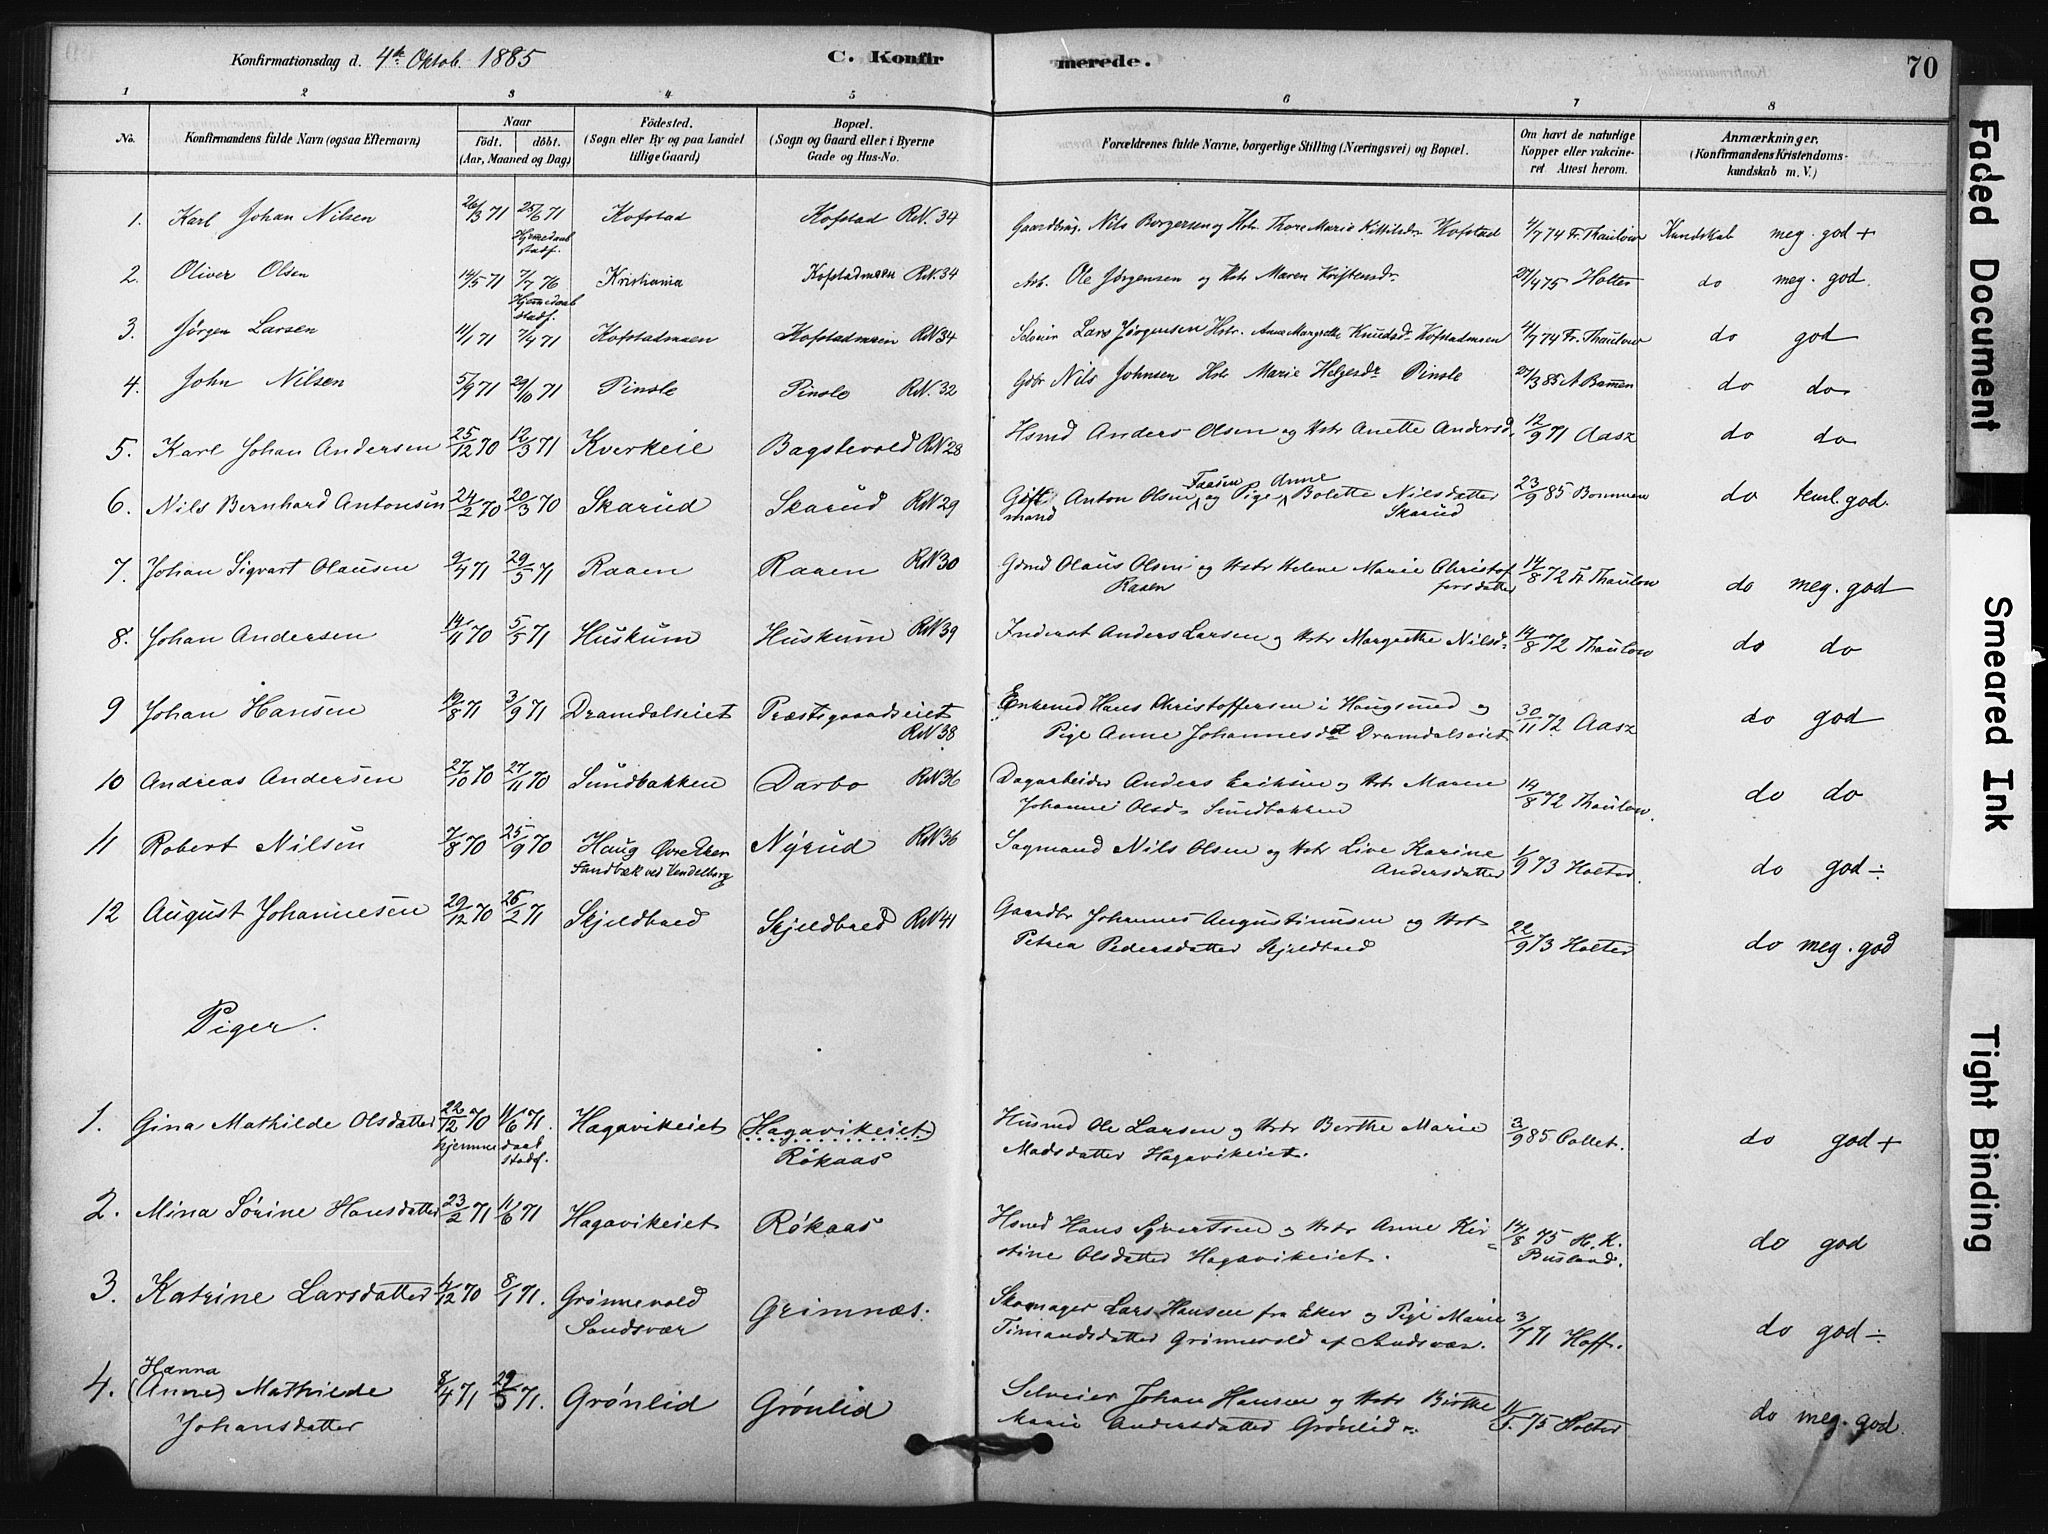 Konfirmationsdag d. 4de Oktob. 1885 C. Konfirmerede. 70
1 2 3 4 5 6 7 8
No. Konfirmandens fulde Navn (ogsaa Efternavn) Naar födt. döbt. (Aar, Maaned og Dag) Födested. (Sogn eller By og paa Landet tillige Gaard) Bopæl. (Sogn og Gaard eller i Byerne Gade og Hus-No. Forældrenes fulde Navne, borgerlige Stilling (Næringsvei) og Bopæl. Om havt de naturlige Kopper eller vakcineret Attest herom. Anmærkninger. (Konfirmandens Kristendomskundskab m. V.)
1. Karl Johan Nilsen 26/3 71 25/6 71 Hjemedaab stadf. Kofstad Kofstad RN. 34 Gaardbrug. Nils Borgersen og Hstr. Thore Marie Kittilsdr Kofstad 4/7 74 Fr. Thaulow Kundskab meg. god +
2. Oliver Olsen 14/5 71 7/7 76 Hjemedaab stadf. Kristiania Kofstadmoen RN. 34 Arb. Ole Jørgensen og Hstr Maren Kristensdr. 27/4 75 Holter do meg. god.
3. Jørgen Larsen 11/1 71 7/4 71 Kofstadmoen Kofstadmoen RN 34 Selveier Lars Jørgensen Hstr. Anne Margrethe Knudsdr Kofstadmoen 4/7 74 Fr. Thaulow do god
4. John Nilsen 5/9 71 29/10 71 Pinsle Pinsle RN. 32 Gdbr Nils Johnsen Hstr Marie Helgesdr Pinsle 27/3 85 do do
5. Karl Johan Andersen 25/12 70 12/3 71 Kverkeie Bagstevold RN 28 Hsmd Anders Olsen og Hstr Anette Andersd. 12/9 71 Aasz do do
6. Nils Bernhard Antonsen 24/2 70 20/3 70 Skarud Skarud RN 29 Gift mand Anton Olsen og Pige Anne Bolette Nilsdatter Skarud 23/9 85 do teml. god.
7. Johan Sigvart Olausen 9/4 71 29/5 71 Raaen Raaen RN 30 Gdmd Olaus Olsen og Hstr Helene Marie Christoffersdatter Raaen 14/8 72 Fr Thaulow do meg. god
8. Johan Andersen 14/11 70 5/5 71 Huskum Huskum RN 39 Inderst Anders Larsen og Hstr Margrethe Nilsd. 14/8 72 Thaulow do do
9 Johan Hansen 12/8 71 3/9 71 Dramdalseiet Præstegaardseiet RN 38 Enkemd Hans Christoffersen i Hougsund og Pige Anne Johannesdt Dramdalseiet 30/11 72 Aasz do god
10 Andreas Andersen 27/10 70 27/11 70 Sundbakken Darbo RN 36 Dagarbeider Anders Eriksen og Hstr Maren Johanne Olsd. Sundbakken 14/8 72 Thaulow. do do
11 Robert Nilsen 7/8 70 25/9 70 Haug Øvre Eker Sandbæk ved Vendelborg Nyrud RN 36 Sagmand Nils Olsen og Hstr Live Karine Andersdatter 1/9 73 Holter. do god ÷
12 August Johannesen 29/12 70 26/2 71 Skjeldbred Skjeldbred RN 41 Gaardbr Johannes Augustinusen og Hstr Petrea Pedersdatter Skjeldbred 22/9 73 Holter do meg. god
Piger.
1. Gina Mathilde Olsdatter 22/12 70 11/6 71. hjemmedaab stadf. Hagavikeiet (Hagavikeiet) Røkaas Husmd Ole Larsen og Hstr Berthe Marie Madsdatter Hagavikeiet. 3/9 85 Collet. do god +
2. Mina Sørine Hansdatter 23/2 71 11/6 71 Hagavikeiet Røkaas Hsmd Hans Syvertsen og Hstr Anne Kirstine Olsdatter Hagavikeiet. 14/8 75 H. K. Busland. do god
3. Katrine Larsdatter 4/12 70 8/1 71. Grønnevold Sandsvær Grimnæs. Skomager Lars Hansen fra Eker og Pige Marie Timandsdatter Grønnevold af Sandsvær. 3/7 71 Hoff. do god ÷
4. Hanna (Anne) Mathilde Johansdatter 8/4 71 29/5 71. Grønlid Grønlid Selveier Johan Hansen og Hstr Birthe Marie Andersdatter Grønlid 11/5. 75 Holter do meg. god.
Faded Document
Smeared Ink
Tight Binding